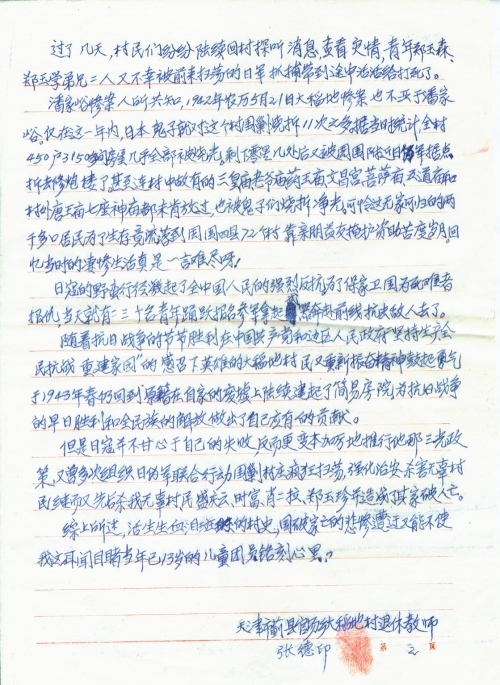 过了几天,村民们纷纷陆续回村探听消息,查看灾情,青年郑玉森、
郑玉学弟兄二人又不幸被前来扫荡的日军抓捕带到途中活活给打死了。
潘家峪惨案人所共知,1942年农历5月21日大稻地惨案也不亚于潘家
峪。仅在这一年内,日本鬼子就对这个村围剿烧拆11次之多,据当时统计,全村
450户3150多间房屋几乎全部被烧光,剩下零星几处后又被周围附近日伪军据点
拆去修炮楼了。甚至连村中故有的三皇庙老爷庙药王庙、文昌宫、菩萨庙、五道庙和
村外唐王庙七座神庙都未肯放过,也被鬼子们烧拆净光。可怜这无家可归的两
千多口居民为了生存竟流落到周围四县72个村靠亲朋益友掩护资助苦度岁月。回
忆当时的凄惨生活真是一言难尽呀!
日寇的野蛮行径激起了全中国人民的强烈反抗,为了保家卫国为死难者
报仇,当天就有三二十名青年踊跃报名参军拿起 奔向前线抗击敌人去了。
随着抗日战争的节节胜利在中国共产党和边区人民政府"坚持生产全
民抗战 重建家园"的感召下英雄的大稻地村民又重新振奋精神鼓起勇气
于1943年春仍回到原籍在自家的废墟上陆续建起了简易房院,为抗日战争
的早日胜利和全民族的解放做出了自己应有的贡献。
但是日寇并不甘心于自己的失败,反而更变本加厉地推行他那三光政
策,又曾多次组织日伪军联合行动围剿村庄疯狂扫荡,强化治安,杀害无辜村
民继而又先后杀我无辜村民盛庆云、时富、肖二投、郑玉珍并造成其家破人亡。
综上所述,活生生血泪 的村史,国破家亡的悲惨遭遇又能不使
我这耳闻目睹当年已13岁的儿童团员铭刻心里。
天津市蓟县官场大稻地村退休教师
张德印
第 2 页